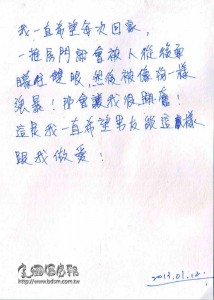 我一直希望每次回家，
一推房門都會被人從後面
矇住雙眼，然後被像　一樣
強暴！那會讓我很興奮！
這是我一直希望男友能這樣
跟我做愛！
2013.01.12.
www.bdsm.com.tw